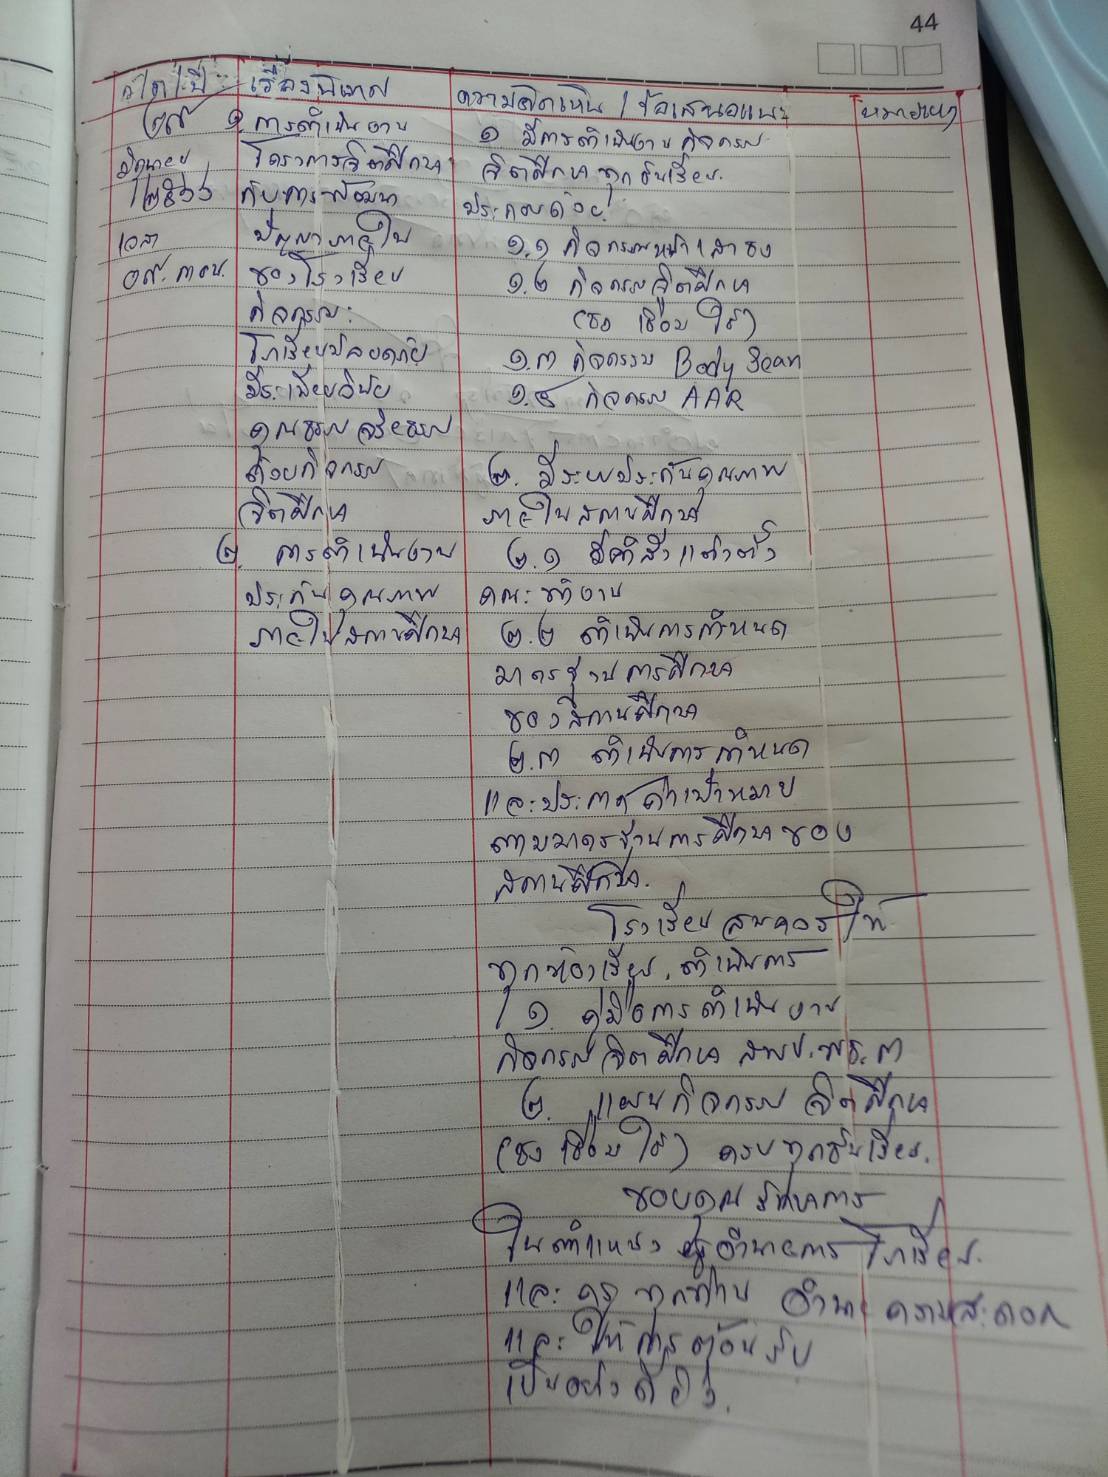 44
ว/ด/ปี เรื่องนิเทศ ความคิดเห็น/ข้อเสนอแนะ หมายเหตุ
๒๙
มิถุนายน
๒๕๖๖
เวลา
๐๙.๓๐น.
๑. การดำเนินงาน
โครงการจิตศึกษา
กับการพัฒนา
ปัญญาภายใน
ของโรงเรียน
กิจกรรม:
โรงเรียนปลอดภัย
มีระเบียบวินัย
คุณธรรม จริยธรรม
ด้วยกิจกรรม
จิตศึกษา
๒. การดำเนินงาน
ประกันคุณภาพ
ภายในสถานศึกษา
๑. มีการดำเนินงานกิจกรรม
จิตศึกษาทุกชั้นเรียน
ประกอบด้วย
๑.๑ กิจกรรมหน้าเสาธง
๑.๒ กิจกรรมจิตศึกษา
(ชง เชื่อม ใช้)
๑.๓ กิจกรรม Body Scan
๑.๔ กิจกรรม AAR
๒. มีระบบประกันคุณภาพ
ภายในสถานศึกษา
๒.๑ มีคำสั่งแต่งตั้ง
คณะทำงาน
๒.๒ ดำเนินการกำหนด
มาตรฐานการศึกษา
ของสถานศึกษา
๒.๓ ดำเนินการกำหนด
และประกาศค่าเป้าหมาย
ตามมาตรฐานการศึกษาของ
สถานศึกษา.
โรงเรียน ให้
ทุกห้องเรียน ดำเนินการ
๑. คู่มือการดำเนินงาน
กิจกรรมจิตศึกษา สพป.พช.๓
๒. แผนกิจกรรมจิตศึกษา
(ชง เชื่อม ใช้) ครบทุกชั้นเรียน.
ขอบคุณ รักษาการ
ในตำแหน่ง ผู้อำนวยการโรงเรียน
และ ครู ทุกท่าน อำนวยความสะดวก
และให้การต้อนรับ
เป็นอย่างดียิ่ง.